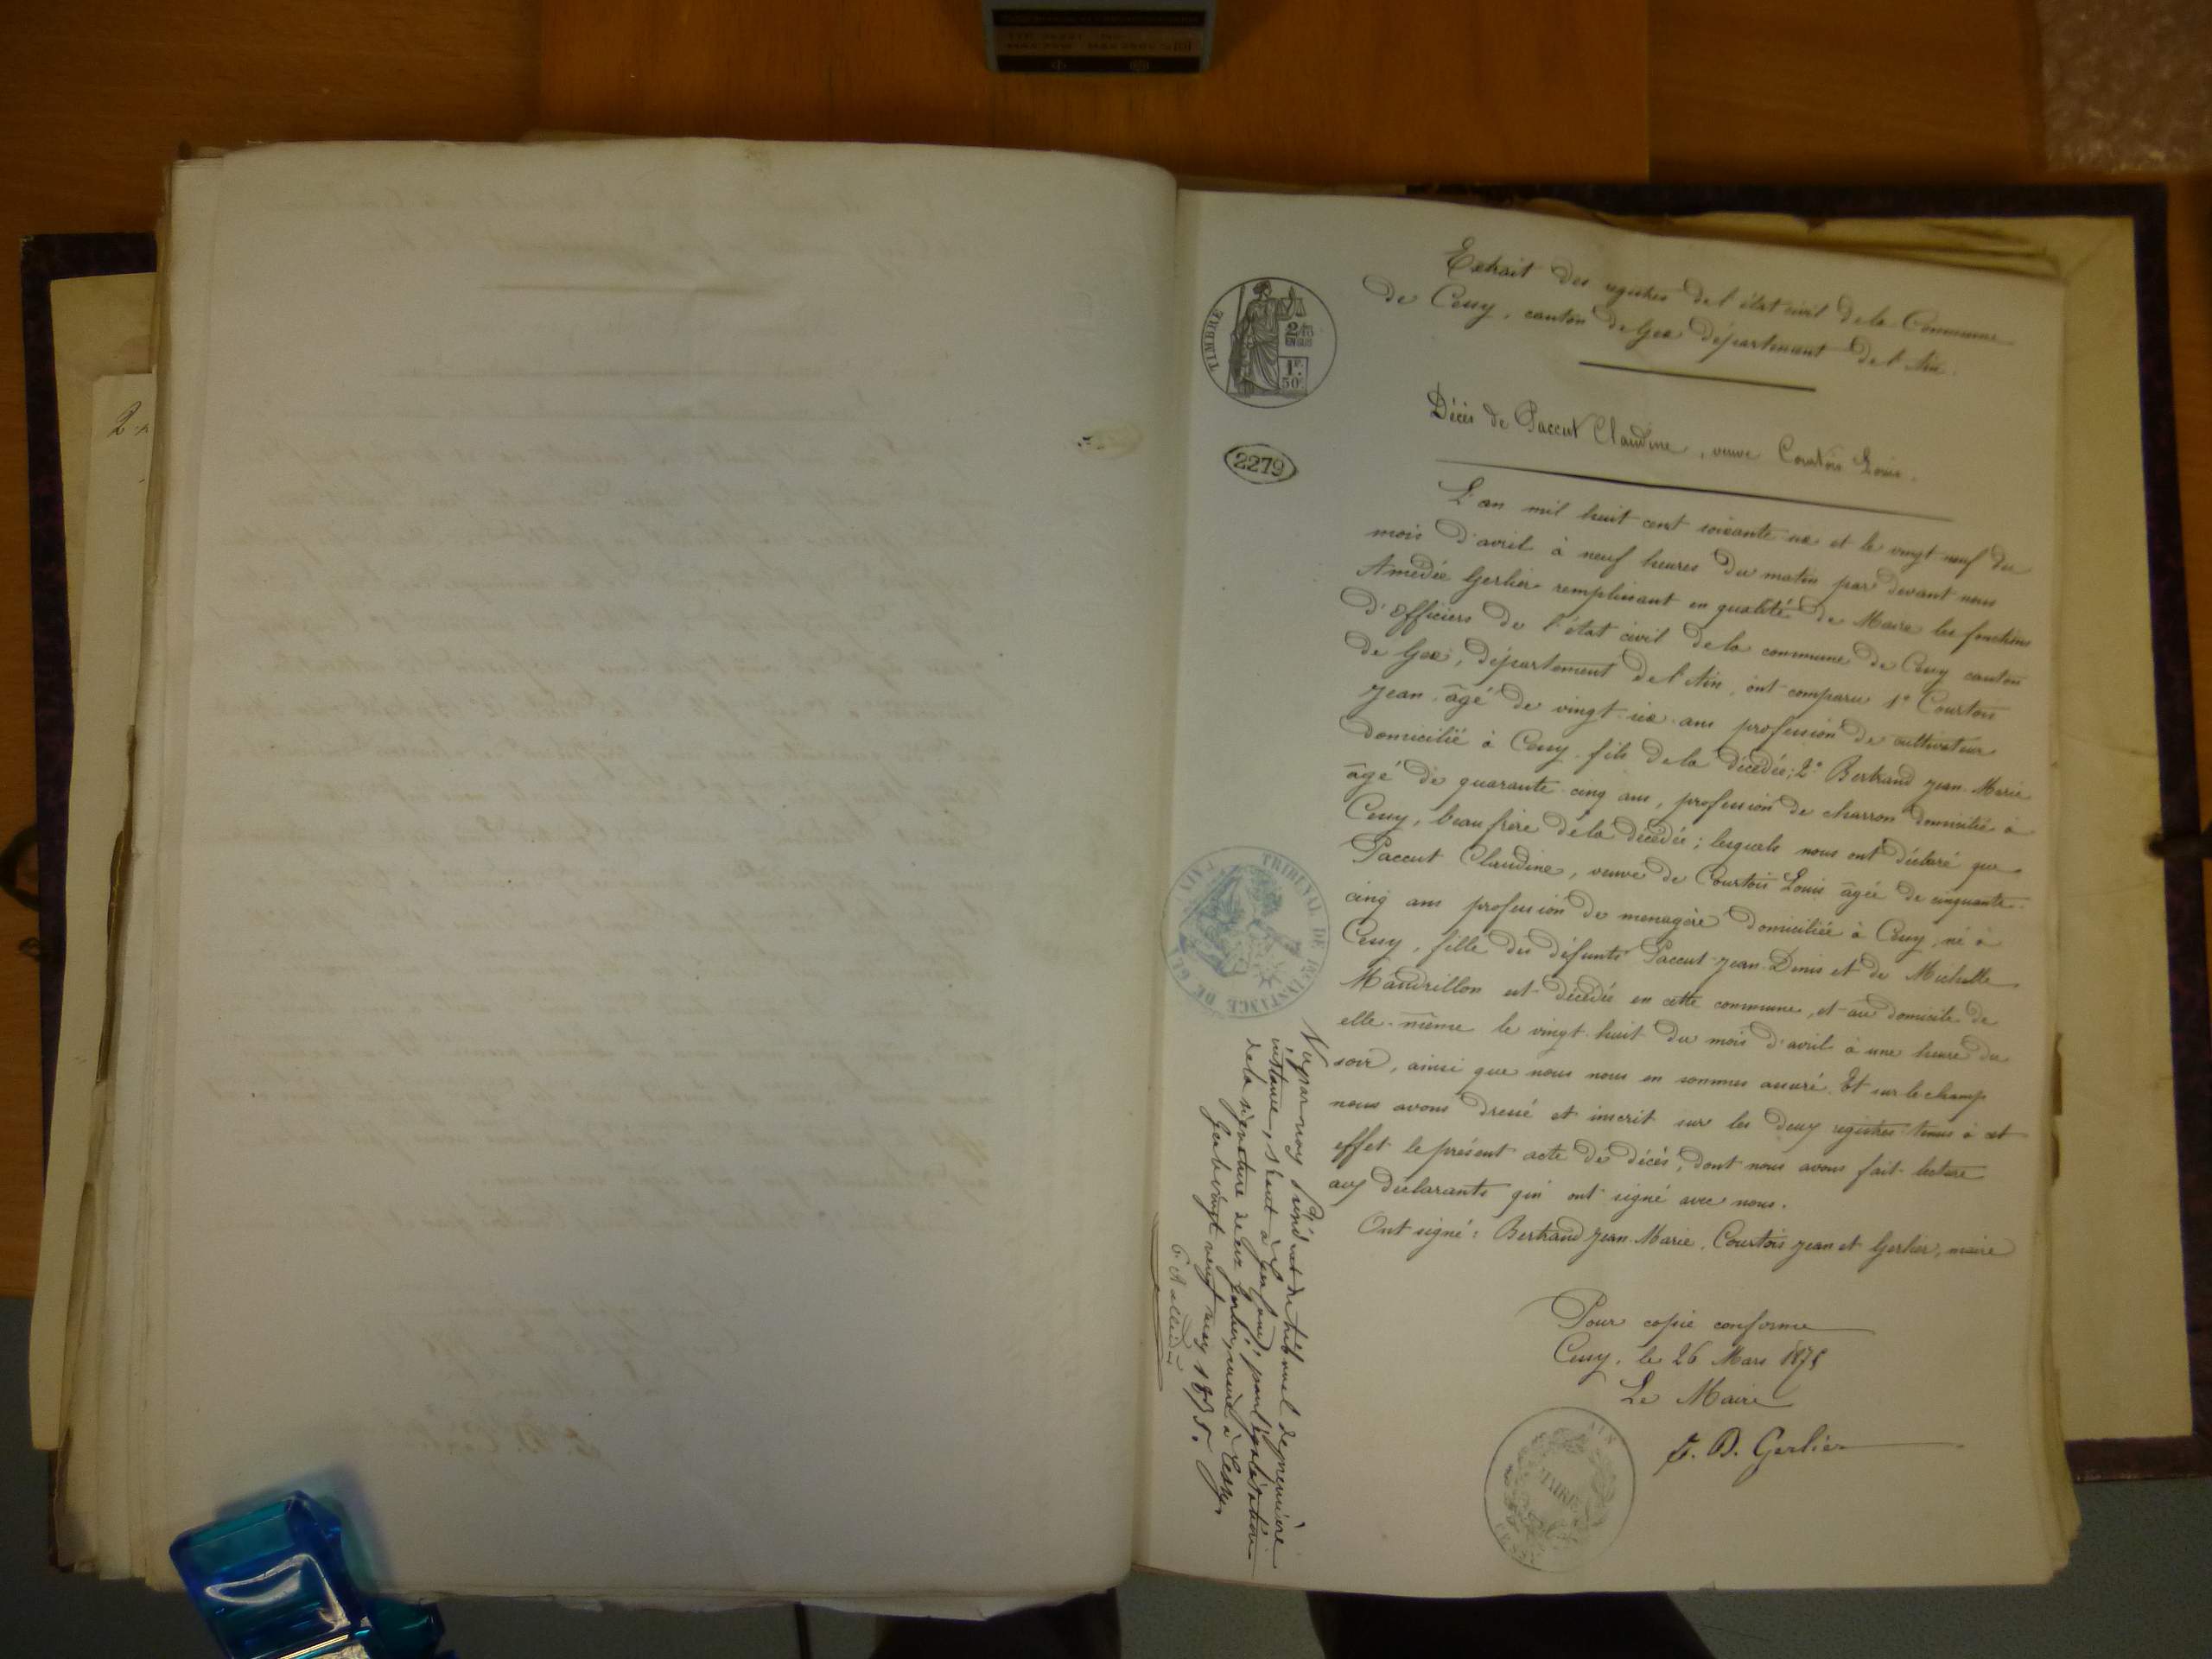 2
Extrait des registres de l'état civil de la Commune
de Cessy, canton de Gex département de l'Ain.
TIMBRE
2/10
EN SUS
1F.
50C
Décès de Paccut Claudine, veuve Courtois Louis.
2279
L'an mil huit cent soixante six et le vingt neuf du
mois d'avril à neuf heures du matin par devant nous
Amédée Gerlier remplissant en qualité de Maire les fonctions
d'Officiers de l'état civil de la commune de Cessy canton
de Gex, département de l'Ain, ont comparu 1° Courtois
Jean, âgé de vingt-six ans profession de cultivateur
domicilié à Cessy fils de la décédée; 2° Bertrand Jean-Marie
âgé de quarante-cinq ans, profession de charron domicilié à
Cessy, beau frère de la décédée; lesquels nous ont déclaré que
Paccut Claudine, veuve de Courtois Louis âgée de cinquante-
cinq ans profession de menagère domiciliée à Cessy, né à
Cessy, fille des défunts Paccut Jean-Denis et de Michelle
Mandrillon est décédée en cette commune, et au domicile de
elle-même le vingt-huit du mois d'avril à une heure du
soir, ainsi que nous nous en sommes assuré. Et sur le champ
nous avons dressé et inscrit sur les deux registres tenus à cet
effet le présent acte de décès, dont nous avons fait lecture
aux déclarants qui ont signé avec nous.
Ont signé: Bertrand Jean-Marie, Courtois Jean et Gerlier, maire
Pour copie conforme
Cessy, le 26 Mars 1875
Le Maire
Gerlier
AIN
MAIRIE
TRIBUNAL DE 1re INSTANCE DE GEX
Vu par nous Président du tribunal de première
instance, séant à Gex, pour légalisation
de la signature de Gerlier, maire à Cessy.
Gex vingt mars 1875.